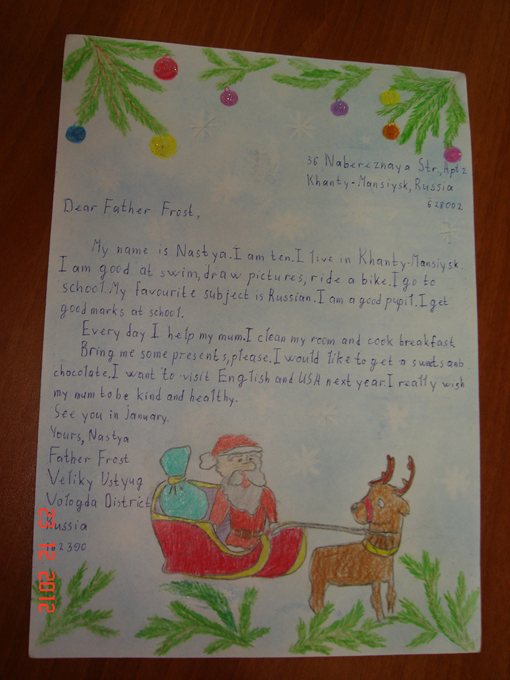 36 Naberezhnaya Str., Apt 2
Khanty-Mansiysk, Russia
628002
Dear Father Frost,
My name is Nastya. I am ten. I live in Khanty-Mansiysk.
I am good at swim, draw pictures, ride a bike. I go to
school. My favourite subject is Russian. I am a good pupil. I get
good marks at school.
Every day I help my mum. I clean my room and cook breakfast
Bring me some presents, please. I would like to get a sweets and
chocolate. I want to visit English and USA next year. I really wish
my mum to be kind and healthy.
See you in january.
Yours, Nastya
Father Frost
Veliky Ustyug
Vologda District
Russia
2390
23 12 2012